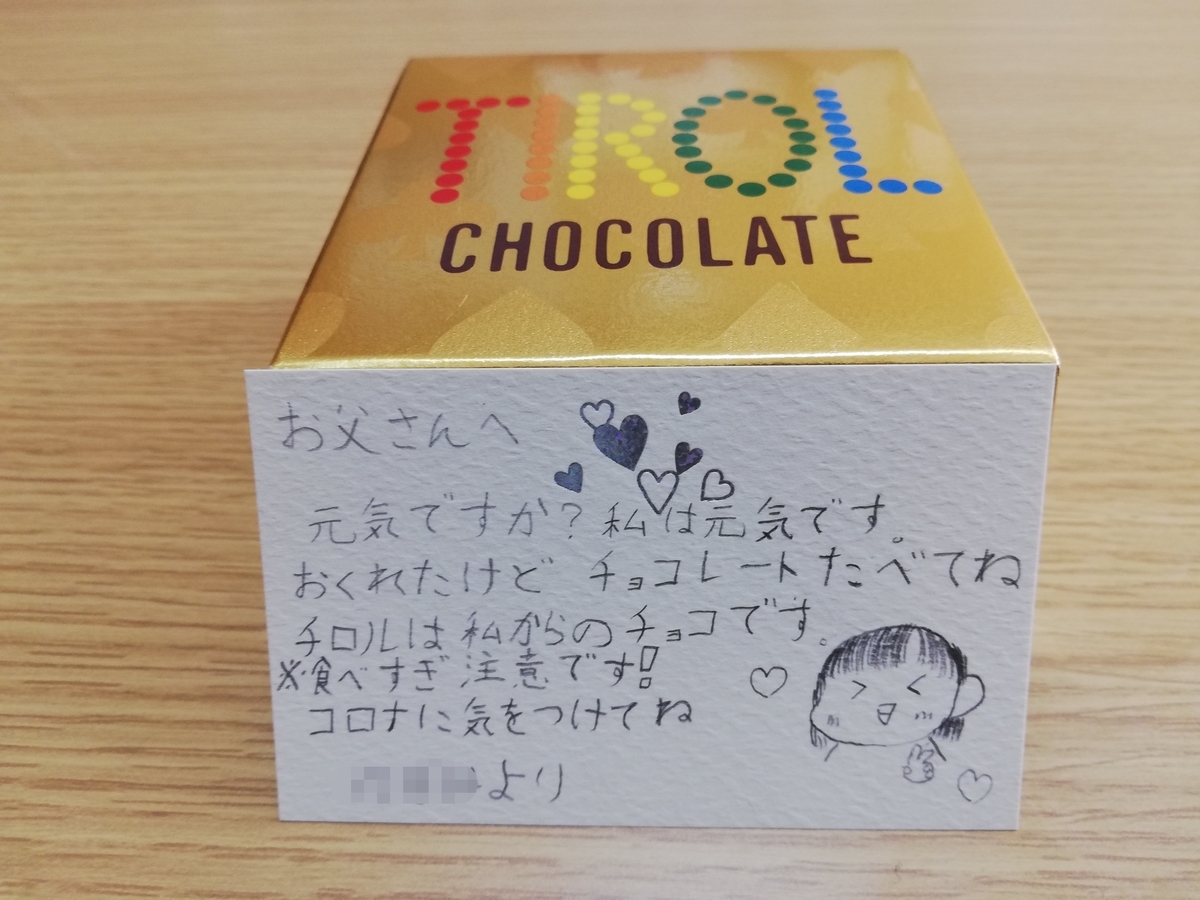 TIROL
CHOCOLATE
お父さんへ
元気ですか?私は元気です。
おくれたけど チョコレートたべてね
チロルは私からのチョコです。
※食べすぎ注意です!
コロナに気をつけてね
より